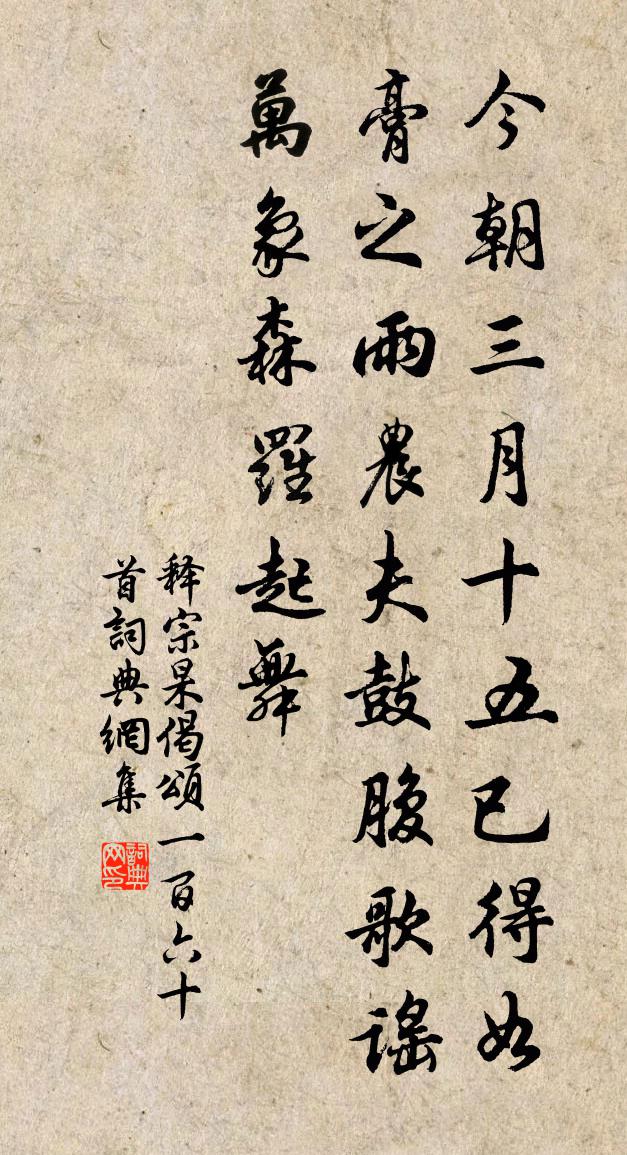 今朝三月十五已得如
膏之雨農夫鼓腹歌謠
萬象森羅起舞
释宗杲偈頌一百六十
首詞典網集
詞典网印